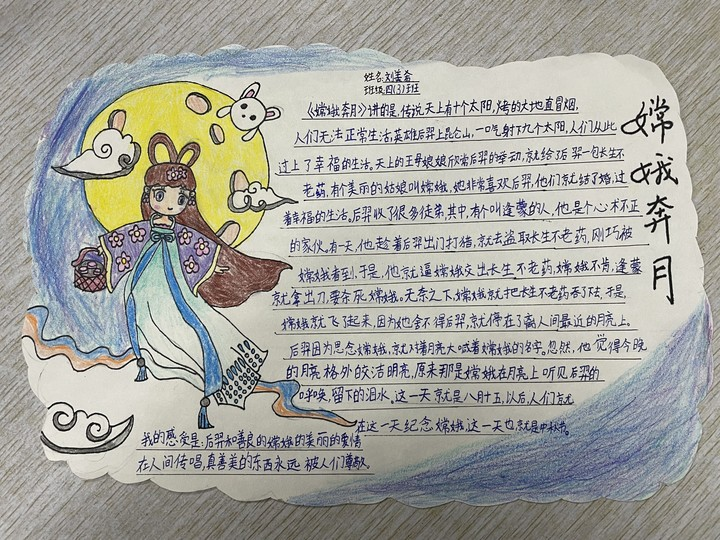 姓名:刘姜希
班级:四(3)班
嫦娥奔月
《嫦娥奔月》讲的是,传说天上有十个太阳,烤的大地直冒烟,
人们无法正常生活,英雄后羿上昆仑山,一口气射下九个太阳,人们从此
过上了幸福的生活。天上的王母娘娘欣常后羿的举动,就给了后羿一包长生不
老药,有个美丽的姑娘叫嫦娥,她非常喜欢后羿,他们就结了婚,过
着幸福的生活。后羿收了很多徒弟,其中,有个叫逢蒙的人,他是个心术不正
的家伙,有一天,他趁着后羿出门打猎,就去盗取长生不老药,刚巧被
嫦娥看到,于是,他就逼嫦娥交出长生不老药,嫦娥不肯,逢蒙
就拿出刀要杀死嫦娥。无奈之下,嫦娥就把长生不老药吞了下去,于是,
嫦娥就飞了起来,因为她舍不得后羿,就停在了离人间最近的月亮上。
后羿因为思念嫦娥,就对着月亮大喊着嫦娥的名字。忽然,他觉得今晚
的月亮格外的洁明亮,原来那是嫦娥在月亮上听见后羿的
呼唤,留下的泪水,这一天就是八月十五,以后,人们就
在这一天纪念嫦娥,这一天也就是中秋节。
我的感受是:后羿和善良的嫦娥的美丽的爱情
在人间传唱,真善美的东西永远被人们尊敬。